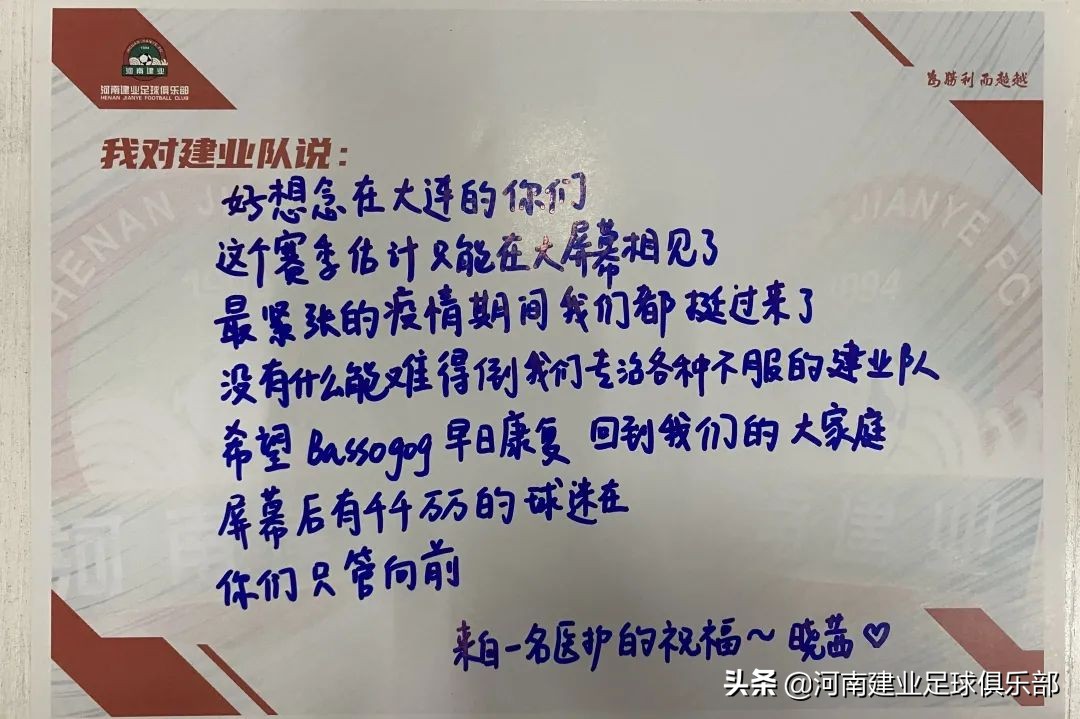 1994
河南建业
河南建业足球俱乐部
HENAN JIANYE FOOTBALL CLUB
为勝利而超越
我对建业队说：
好想念在大连的你们
这个赛季估计只能在大屏幕相见了
最紧张的疫情期间我们都挺过来了
没有什么能难得倒我们专治各种不服的建业队
希望Bassogog早日康复 回到我们的大家庭
屏幕后有千千万万的球迷在
你们只管向前
来自一名医护的祝福～晓茜♡
HENAN JI
JIANYE FC
1994
河南
头条 @河南建业足球俱乐部